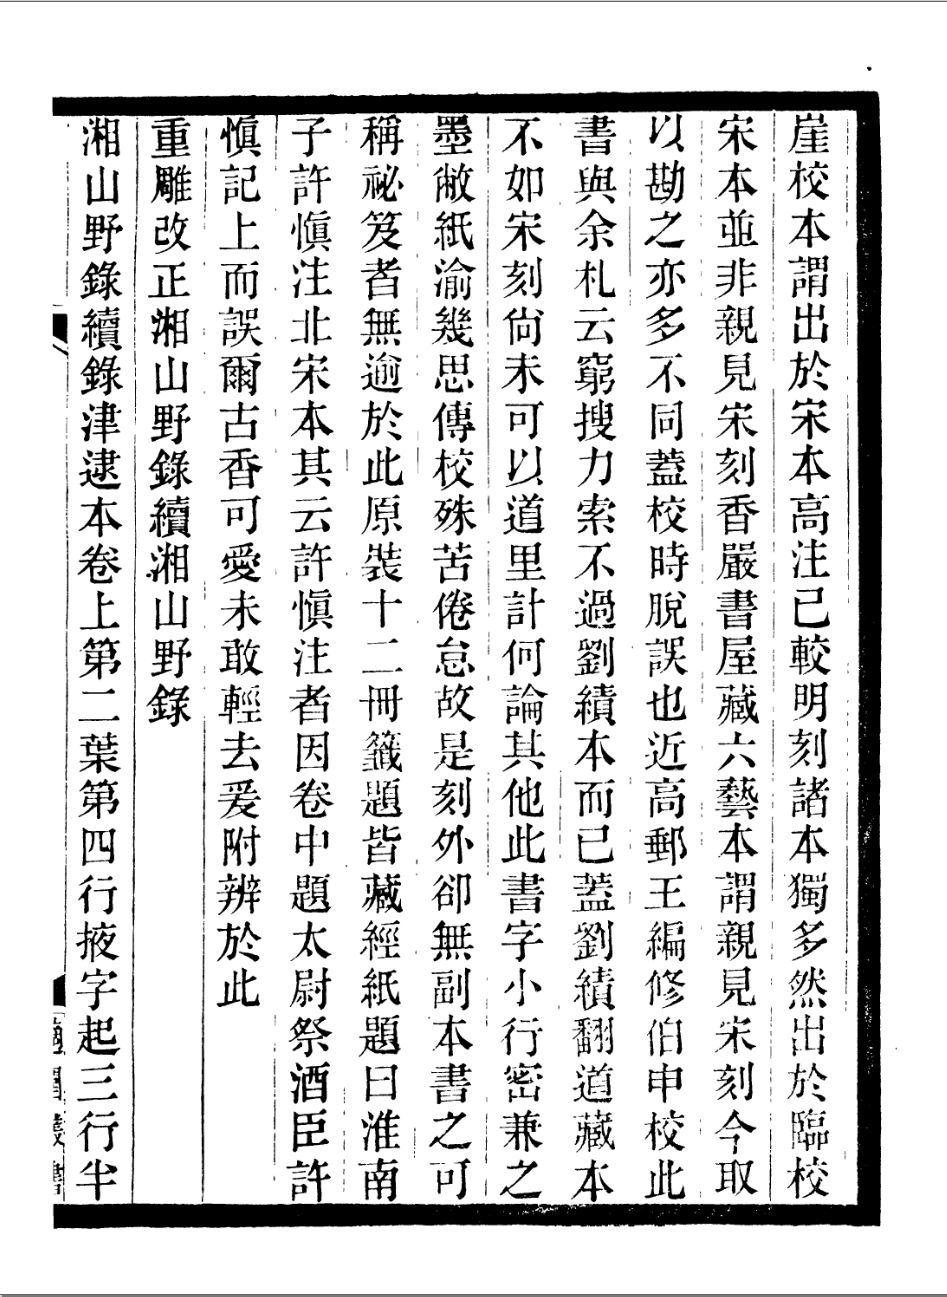 崖校本謂出於宋本高注已較明刻諸本獨多然出於臨校
宋本並非親見宋刻香嚴書屋藏六藝本謂親見宋刻今取
以勘之亦多不同蓋校時脫誤也近高郵王編修伯申校此
書與余札云窮搜力索不過劉績本而已蓋劉績翻道藏本
不如宋刻尙未可以道里計何論其他此書字小行密兼之
墨敝紙渝幾思傳校殊苦倦怠故是刻外卻無副本書之可
稱祕笈者無逾於此原裝十二冊籤題皆藏經紙題曰淮南
子許愼注北宋本其云許愼注者因卷中題太尉祭酒臣許
愼記上而誤爾古香可愛未敢輕去爰附辨於此
重雕改正湘山野錄續湘山野錄
湘山野錄續錄津逮本卷上第二葉第四行掖字起三行半
叢書